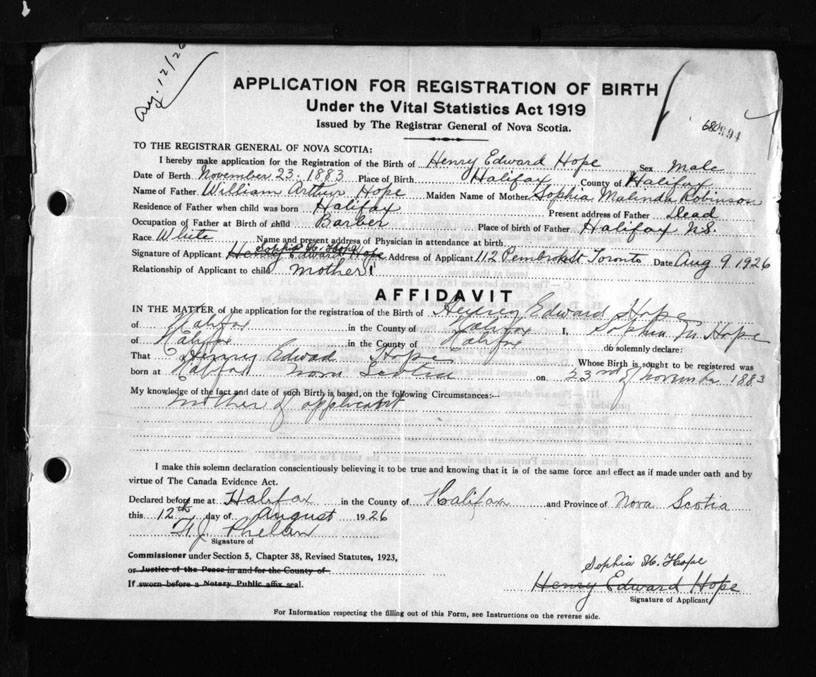 Aug. 12/26
APPLICATION FOR REGISTRATION OF BIRTH
Under the Vital Statistics Act 1919
Issued by The Registrar General of Nova Scotia.
TO THE REGISTRAR GENERAL OF NOVA SCOTIA:
I hereby make application for the Registration of the Birth of Henry Edward Hope Sex Male
Date of Birth November 23. 1883 Place of Birth Halifax County of Halifax
Name of Father William Arthur Hope Maiden Name of Mother Sophia Malinda Robinson
Residence of Father when child was born Halifax Present address of Father Dead
Occupation of Father at Birth of child Barber Place of birth of Father Halifax N.S.
Race White Name and present address of Physician in attendance at birth
Sophia M. Hope
Signature of Applicant Henry Edward Hope Address of Applicant 112 Pembroke St Toronto Date Aug 9 1926
Relationship of Applicant to child mother
AFFIDAVIT
IN THE MATTER of the application for the registration of the Birth of Henry Edward Hope
of Halifax in the County of Halifax I, Sophia M. Hope
of Halifax in the County of Halifax do solemnly declare:
That Henry Edward Hope Whose Birth is sought to be registered was
born at Halifax Nova Scotia on 23rd of November 1883
My knowledge of the fact and date of such Birth is based, on the following Circumstances:—
mother of applicant
I make this solemn declaration conscientiously believing it to be true and knowing that it is of the same force and effect as if made under oath and by
virtue of The Canada Evidence Act.
Declared before me at Halifax in the County of Halifax and Province of Nova Scotia
this 12th day of August 1926
Phelan
Signature of
Commissioner under Section 5, Chapter 38, Revised Statutes, 1923,
or Justice of the Peace in and for the County of
If sworn before a Notary Public affix seal.
Sophia M. Hope
Henry Edward Hope
Signature of Applicant
For Information respecting the filling out of this Form, see Instructions on the reverse side.